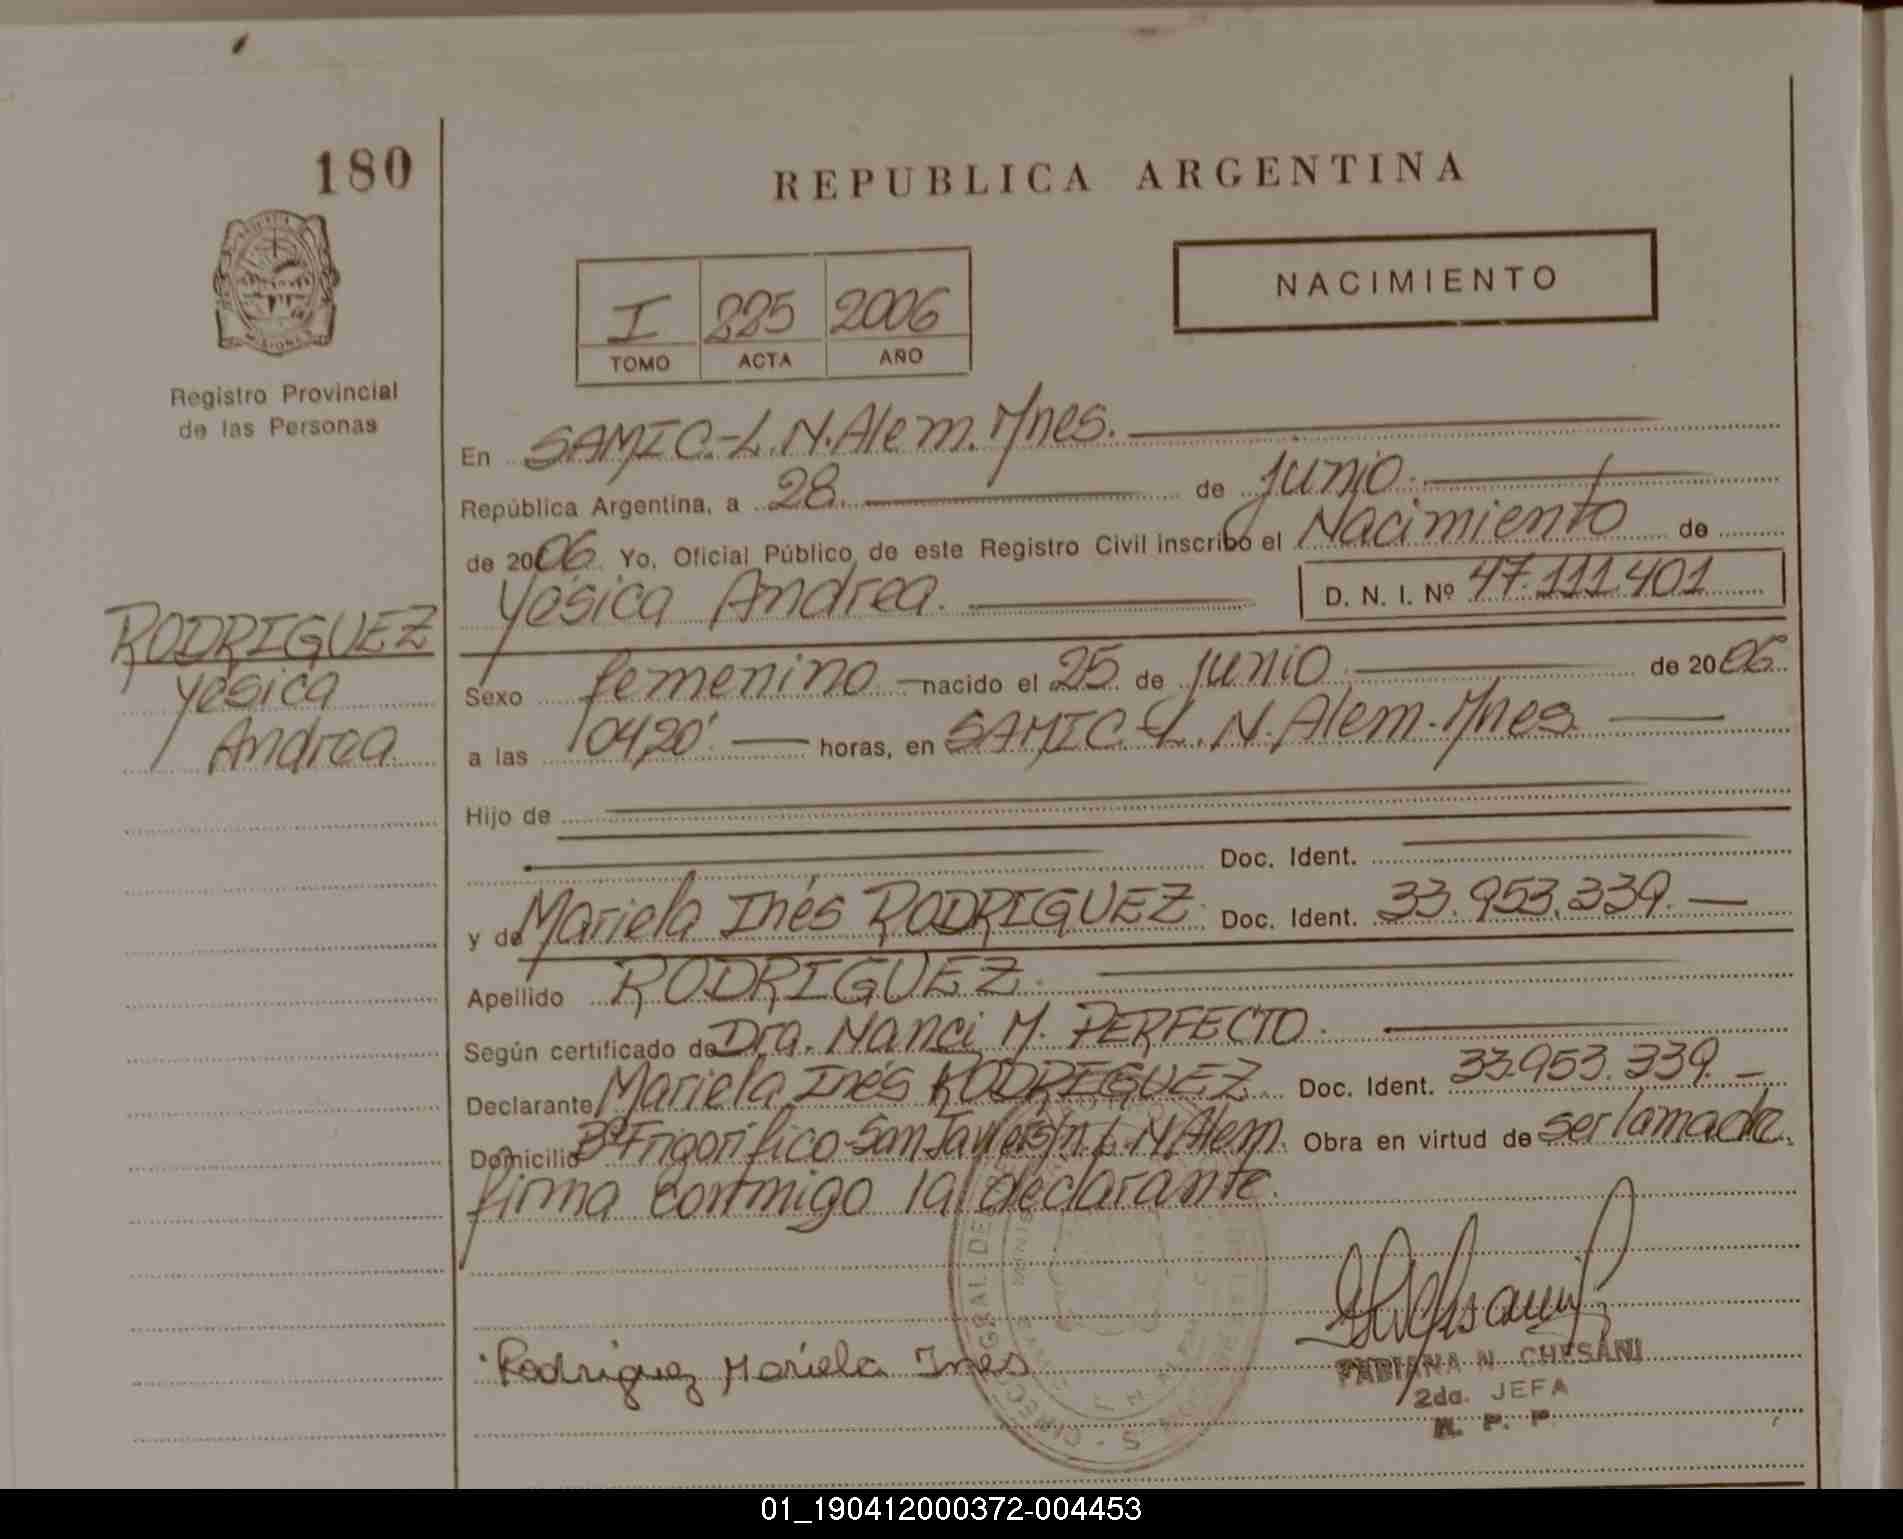 180
REPUBLICA ARGENTINA
NACIMIENTO
I 225 2006
TOMO ACTA AÑO
Registro Provincial
de las Personas
RODRIGUEZ
Yésica
Andrea
En SAMIC.-L.N.Alem.Mnes.
República Argentina, a 28. de junio.
de 2006. Yo, Oficial Público de este Registro Civil inscribo el Nacimiento de
Yésica Andrea. D. N. I. Nº 47.111.401
Sexo femenino nacido el 25 de junio de 2006
a las 0420' horas, en SAMIC.-L.N.Alem.Mnes
Hijo de
Doc. Ident.
y de Mariela Inés RODRIGUEZ. Doc. Ident. 33.953.339.
Apellido RODRIGUEZ.
Según certificado de Dra. Nanci M. PERFECTO.
Declarante Mariela Inés RODRIGUEZ Doc. Ident. 33.953.339.
Domicilio Bº Frigorífico-San Javier s/n L.N.Alem. Obra en virtud de ser la madre.
firma conmigo la declarante.
Rodriguez Mariela Ines
FABIANA N. CHESANI
2da. JEFA
R. P. P.
01_190412000372-004453